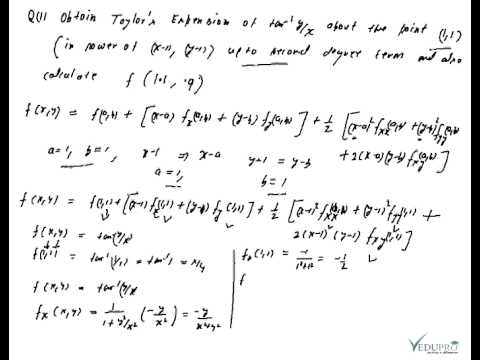 Q(1) Obtain Taylor's Expension of tan⁻¹ y/x about the point (1,1)
(in power of (x-1), (y-1)) up to second degree term and also
calculate f(1.1, .9)
f(x,y) = f(a,b) + [(x-a) fx(a,b) + (y-b) fy(a,b)] + 1/2 [(x-a)² fxx(a,b) + (y-b)² fyy(a,b)
+ 2(x-a)(y-b) fxy(a,b)]
a=1, b=1, x-1 ⇒ x-a y-1 = y-b
a=1, b=1
f(x,y) = f(1,1) + [(x-1) fx(1,1) + (y-1) fy(1,1)] + 1/2 [(x-1)² fxx(1,1) + (y-1)² fyy(1,1) +
2(x-1)(y-1) fxy(1,1)]
f(x,y) = tan⁻¹(y/x)
f(1,1) = tan⁻¹(1/1) = tan⁻¹ 1 = π/4
f(x,y) = tan⁻¹ y/x
fx(x,y) = 1/(1+y²/x²) (-y/x²) = -y/(x²+y²)
fx(1,1) = -1/(1²+1²) = -1/2
f
VEDUPRO